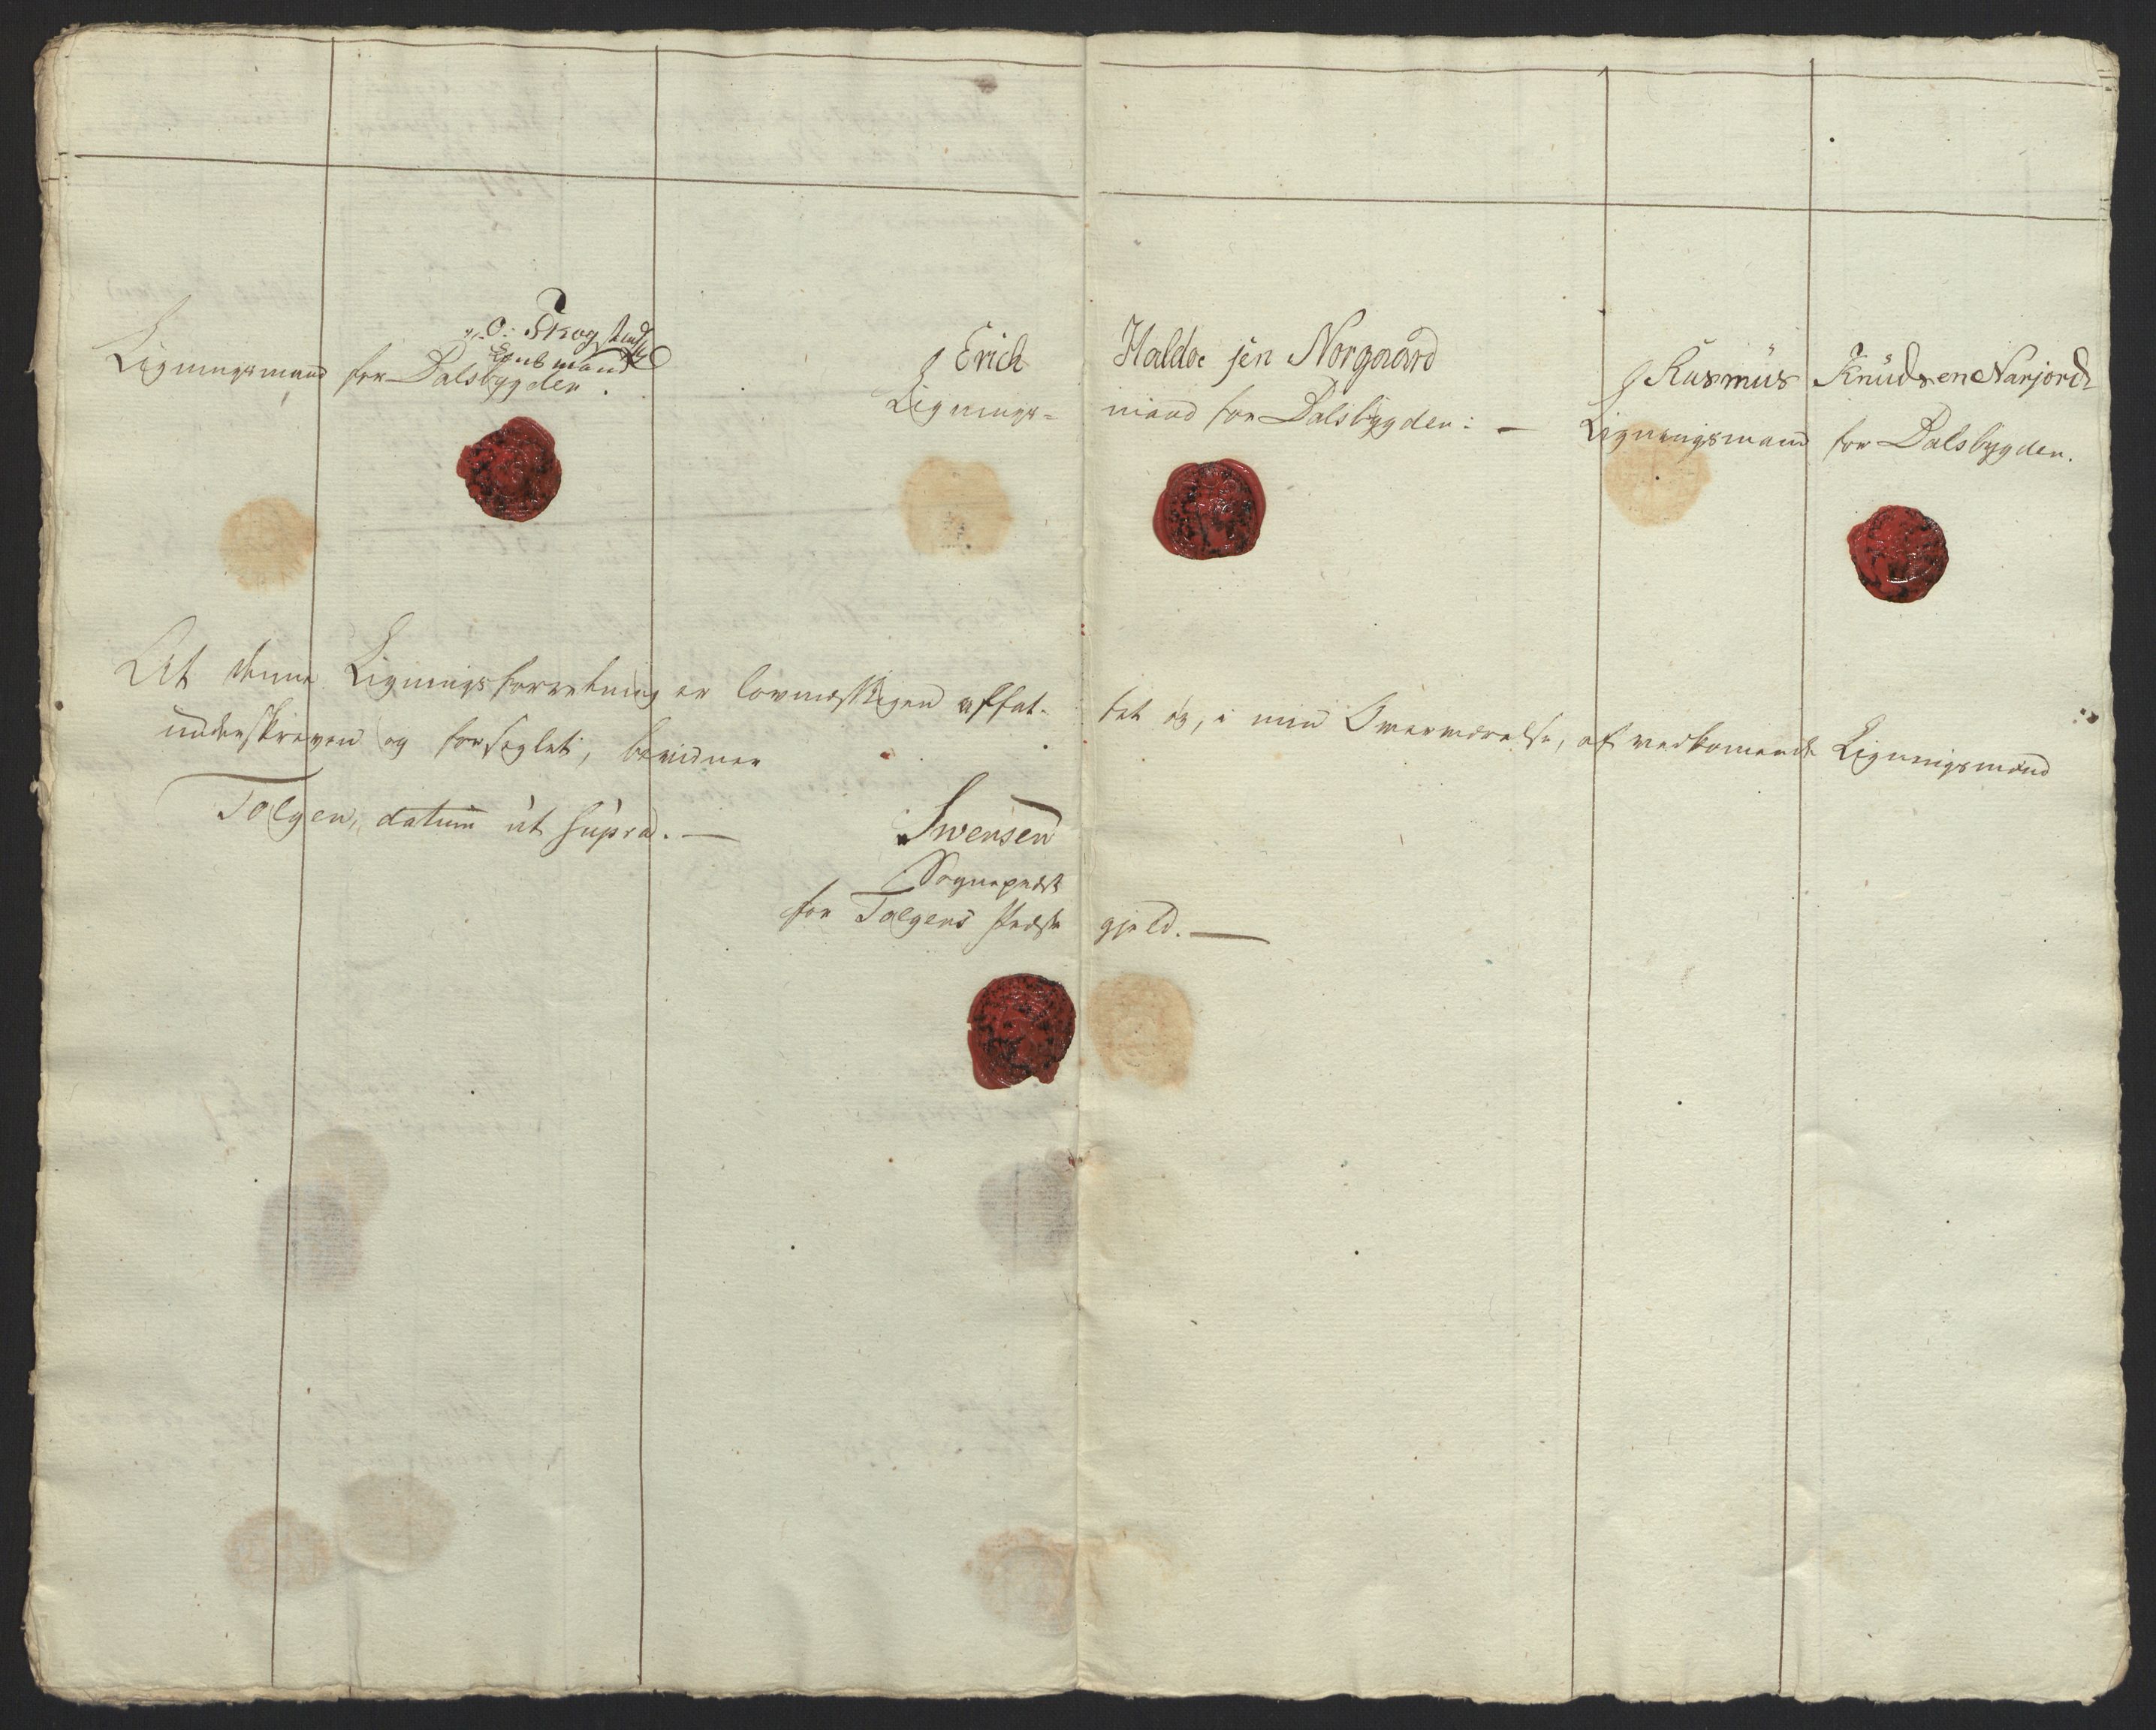 O: Skogstad
Lensmand
Ligningsmand for Dalsbygden.
Erich Haldoesen Norgaard
Lignings=mand for Dalsbygden: —
Rasmüs Knüdsen Narjord
Ligningsmand for Dalsbygden.
At denne Ligningsforretning er lovmæssigen affattet og, i min Overværelse, af vedkomende Ligningsmænd
ünderskreven og forseglet, bevidner
Tolgen, datum üt süpra. —
Swensen
Sognepræst
for Tolgens Præstegjeld. —